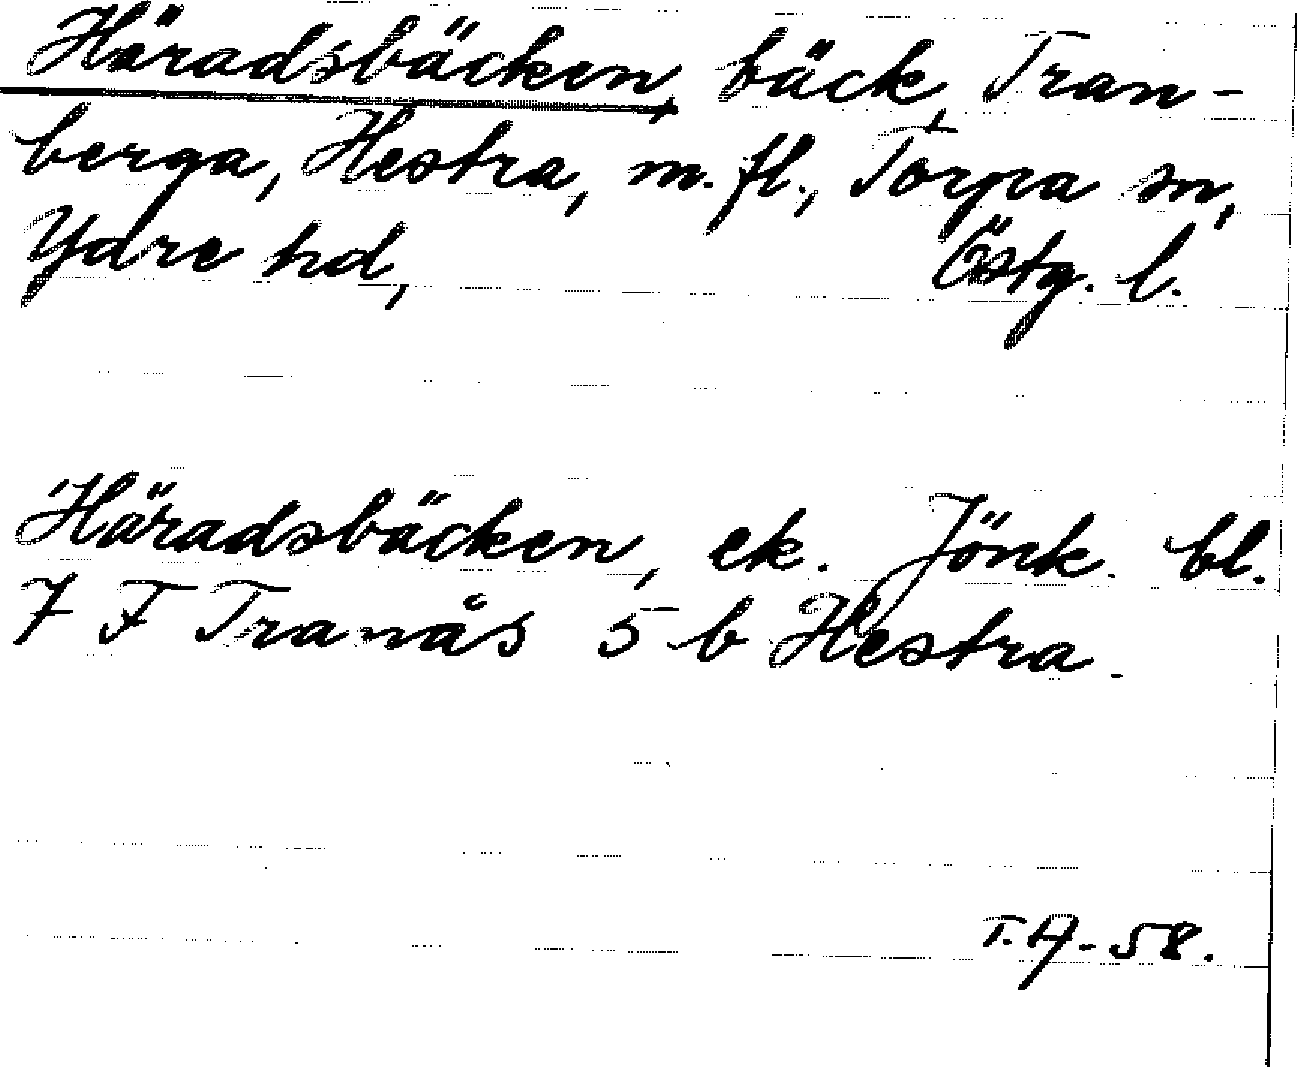 Häradsbäcken, bäck, Tran-
berga, Hestra, m. fl., Torpa sn,
Ydre hd, Östg. l.
Häradsbäcken, ek. Jönk. bl.
7 F Tranås 5 b Hestra.
T. A. - 58.